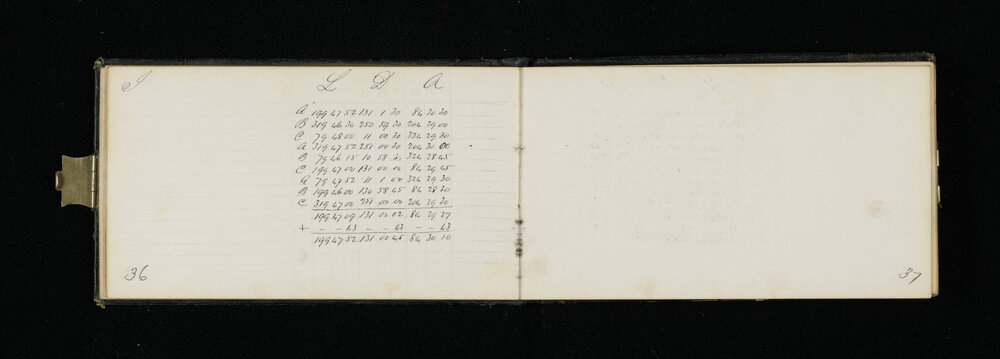 I L D A
A 199 47 52 131 1 30 84 30 30
B 319 46 30 250 59 30 204 29 00
C 79 48 00 11 00 30 324 29 30
A 319 47 52 251 00 30 204 30 00
B 79 46 15 10 58 30 324 28 45
C 199 47 00 131 00 00 84 29 45
A 79 47 52 11 1 00 324 29 30
B 199 46 00 130 58 45 84 28 30
C 319 47 00 251 00 00 204 29 30
199 47 09 131 00 02 84 29 27
+ - - 43 - - 43 - - 43
199 47 52 131 00 45 84 30 10
36
37